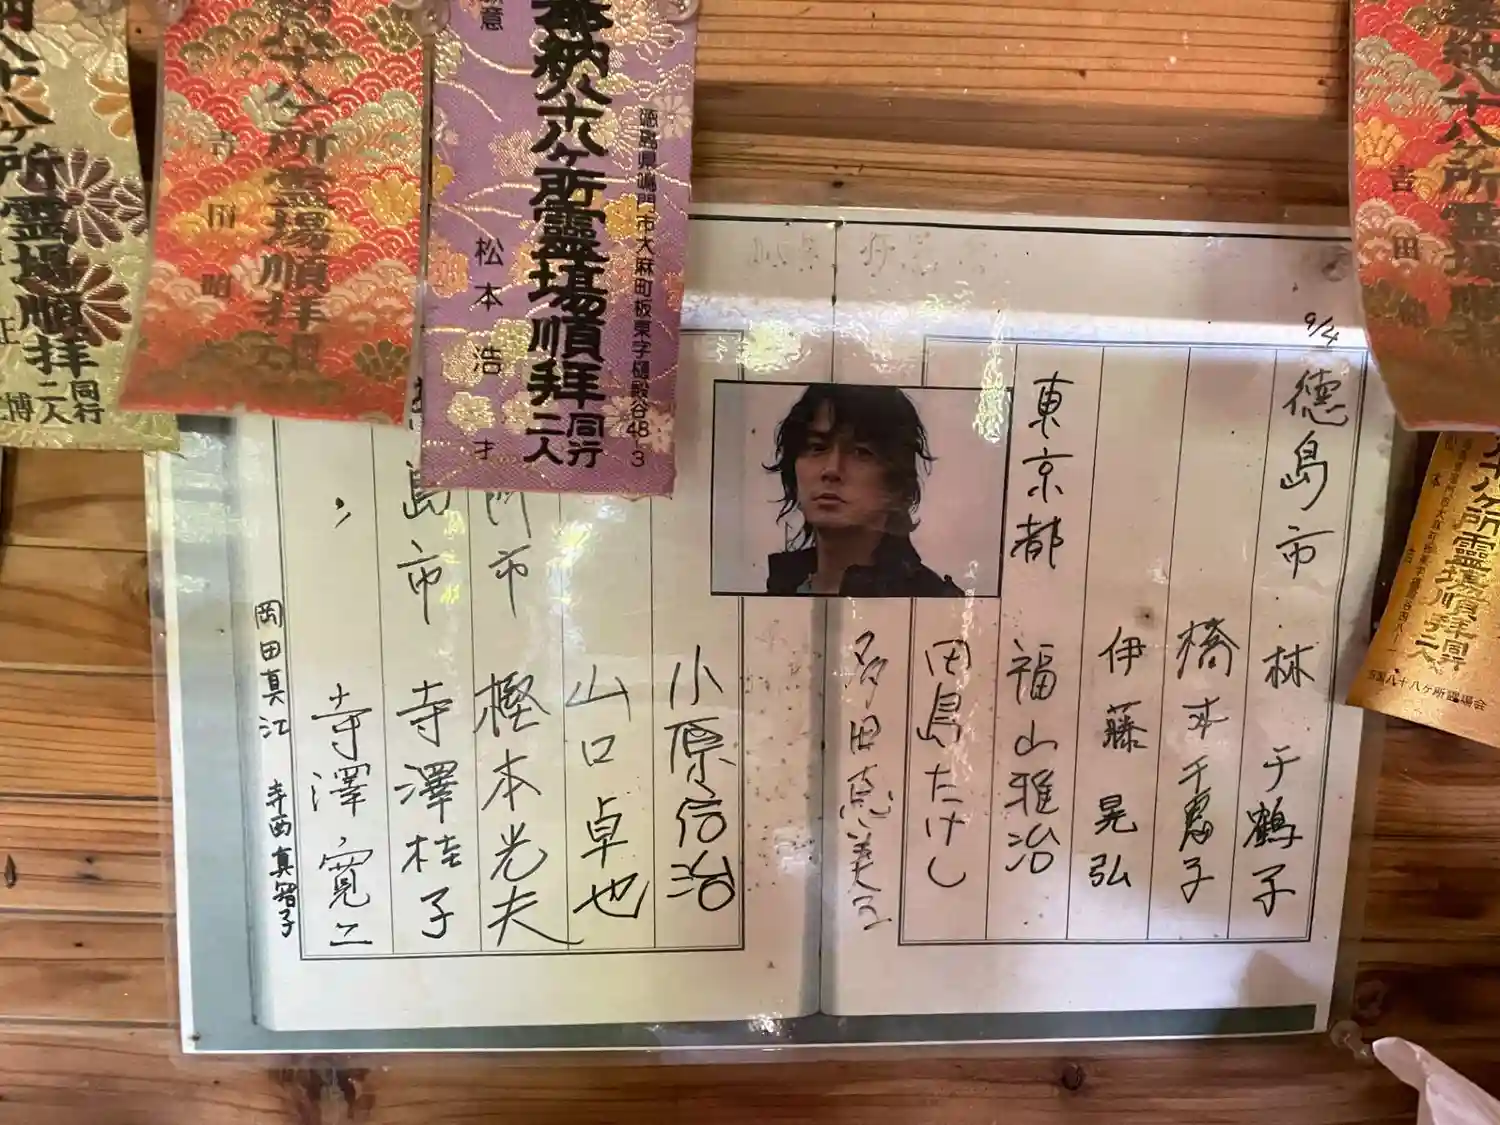 9/4
徳島市 林 千鶴子
橋本千恵子
伊藤晃弘
東京都 福山雅治
田島たけし
多田恵美子
小原信治
山口卓也
市 樫本光夫
島市 寺澤桂子
〃 寺澤寛二
岡田真江 寺西真智子
徳島県鳴門市大麻町板東字樋殿谷48-3
奉納八十八ヶ所霊場順拝 同行二人
松本浩 才
意
八十八ヶ所霊場順拝 同行二人
博
正
十八ヶ所霊場順拝
吉田昭
納八十八ヶ所霊
吉田
十八ヶ所霊場順拝 同行二人
八十八ヶ所霊場会